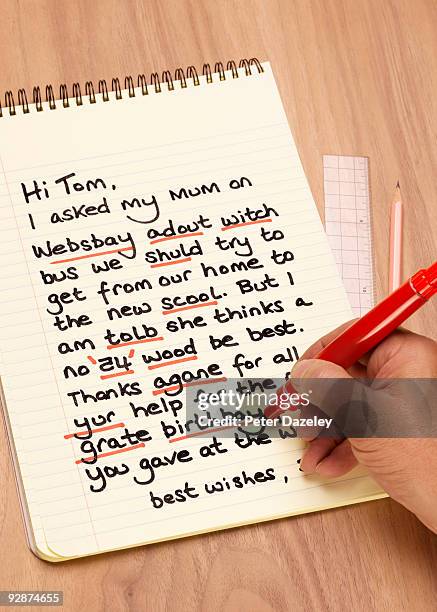 Hi Tom,
I asked my Mum on
Websbay adout witch
bus we shuld try to
get from our home to
the new scool. But I
am tolb she thinks a
no '24' wood be best.
Thanks agane for all
yur help the
grate
you gave at the
best wishes,
Peter Dazeley
92874655